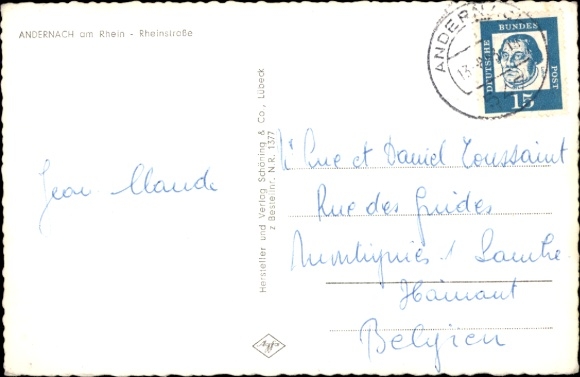 ANDERNACH am Rhein - Rheinstraße
ANDERNACH
13.
DEUTSCHE BUNDES POST
15
Hersteller und Verlag Schöning & Co., Lübeck
z Bestellnr. N.R. 1377
Jean Claude
et Daniel Toussaint
Rue des Guides
Montignies / Sambre
Hainaut
Belgien